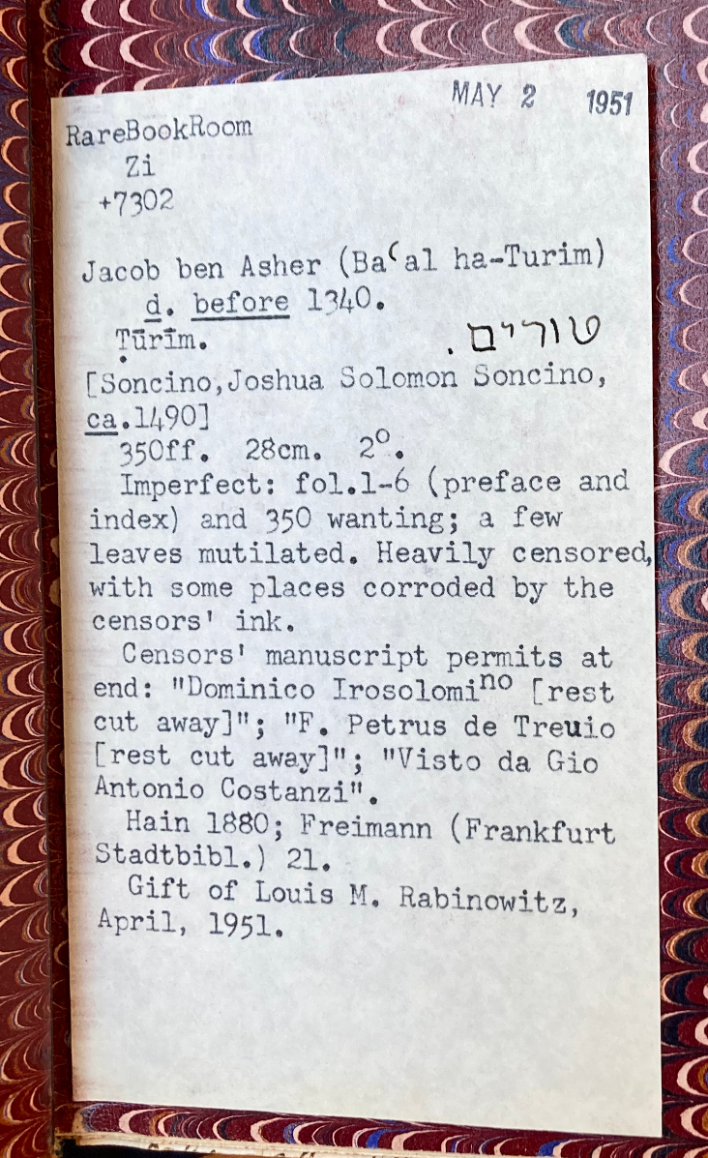 MAY 2 1951
RareBookRoom
Zi
+7302
Jacob ben Asher (Baʿal ha-Turim)
d. before 1340.
Ṭūrīm. טורים.
[Soncino,Joshua Solomon Soncino,
ca.1490]
350ff. 28cm. 2º.
Imperfect: fol.1-6 (preface and
index) and 350 wanting; a few
leaves mutilated. Heavily censored,
with some places corroded by the
censors' ink.
Censors' manuscript permits at
end: "Dominico Irosolomino [rest
cut away]"; "F. Petrus de Treuio
[rest cut away]"; "Visto da Gio
Antonio Costanzi".
Hain 1880; Freimann (Frankfurt
Stadtbibl.) 21.
Gift of Louis M. Rabinowitz,
April, 1951.